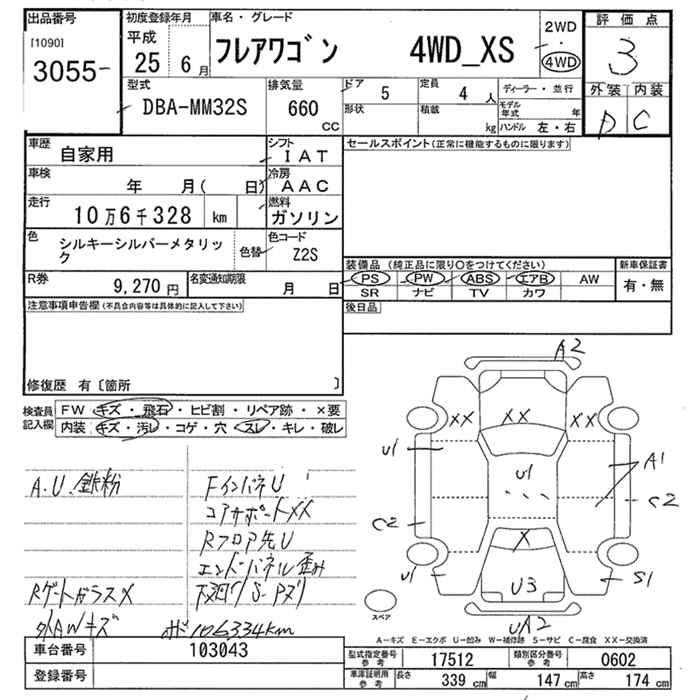 出品番号 初度登録年月 車名・グレード 2WD 評価点
[1090] 平成 ・
3055- 25 6月 フレアワゴン 4WD_XS 4WD 3
型式 排気量 ドア 5 定員 4人 ディーラー・並行 外装 内装
DBA-MM32S 660 cc 形状 積載 kg モデル年式 年 D C
ハンドル 左・右
車歴 自家用 シフト IAT セールスポイント(正常に機能するものに限ります)
車検 年 月( 日) 冷房 AAC
走行 10万6千328 km 燃料 ガソリン
色 シルキーシルバーメタリック 色替 色コード Z2S
装備品 (純正品に限り○をつけてください) 新車保証書
R券 9,270円 名変通知期限 月 日 PS ・ PW ・ ABS ・ エアB ・ AW 有・無
SR ナビ TV カワ
注意事項申告欄(不具合内容等は具体的に記入して下さい) 後日品
修復歴 有〔箇所 〕
検査員記入欄 FW キズ・飛石・ヒビ割・リペア跡・×要
内装 キズ・汚レ・コゲ・穴・スレ・キレ・破レ
A2
XX XX XX
U1 U1 A1
C2 C2
X
U1 U3 S1
UA2
スペア
A.U.鉄粉 FインパネU
コアサポートXX
Rフロア先U
エンドパネル歪み
RゲートガラスX 下廻りS・Pズリ
外AWキズ メーター106334km
A-キズ E-エクボ U-凹み W-補修跡 S-サビ C-腐食 XX-交換済
車台番号 103043 型式指定番号 参考 17512 類別区分番号 参考 0602
登録番号 車庫証明用 参考 長さ 339 cm 幅 147 cm 高さ 174 cm